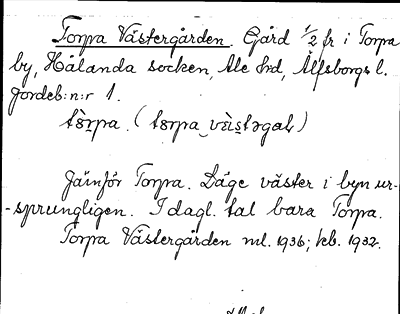 Torpa Västergården. Gård 1/2 fr i Torpa
by, Hålanda socken, Ale hrd, Älfsborgs l.
Jordeb:n:r 1.
Jämför Torpa. Läge väster i byn ur-
-sprungligen. I dagl. tal bara Torpa.
Torpa Västergården ml. 1936; kb. 1932.